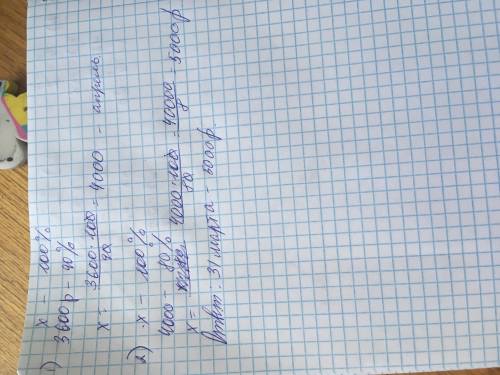 1) x – 100%
3600р – 90%
x = 3600·100/90 = 4000 – апрель
2) x – 100%
4000 – 80%
x = 4000·100/80 = 40000/8 = 5000р
Ответ: 31 марта – 5000р.